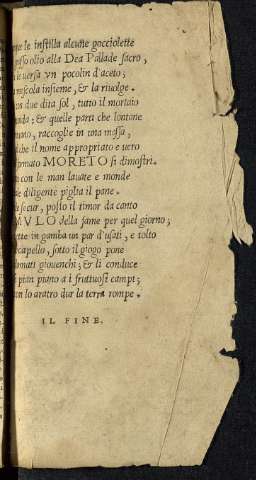 le instilla alcune gocciolette
olio alla Dea Pallade sacro,
versa vn pocolin d'aceto;
mescola insieme, & la riuolge.
due dita sol, tutto il mortaio
& quelle parti che lontane
raccoglie in una massa,
che il nome appropriato e uero
MORETO si dimostri.
con le man lauate e monde
diligente piglia il pane.
secur, posto il timor da canto
MVLO della fame per quel giorno;
in gamba un par d'usati, e tolto
capello, sotto il giogo pone
giouenchi; & li conduce
pian piano a i fruttuosi campi;
lo aratro dur la terra rompe.
IL FINE.